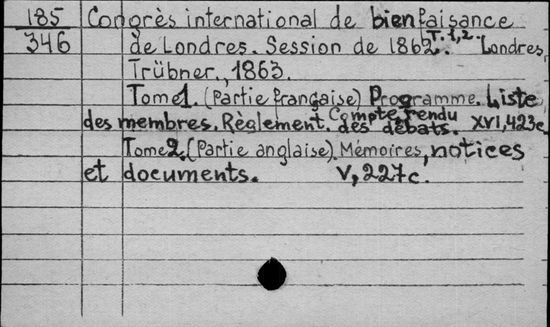 185 Congrès international de bienfaisance
346 de Londres. Session de 1862. T. 1,2. Londres,
Trübner., 1863.
Tome 1. (Partie française) Programme. Liste
des membres. Règlement. Compte rendu des débats. XVI, 423 c.
Tome 2. (Partie anglaise). Mémoires, notices
et documents. V, 227 c.